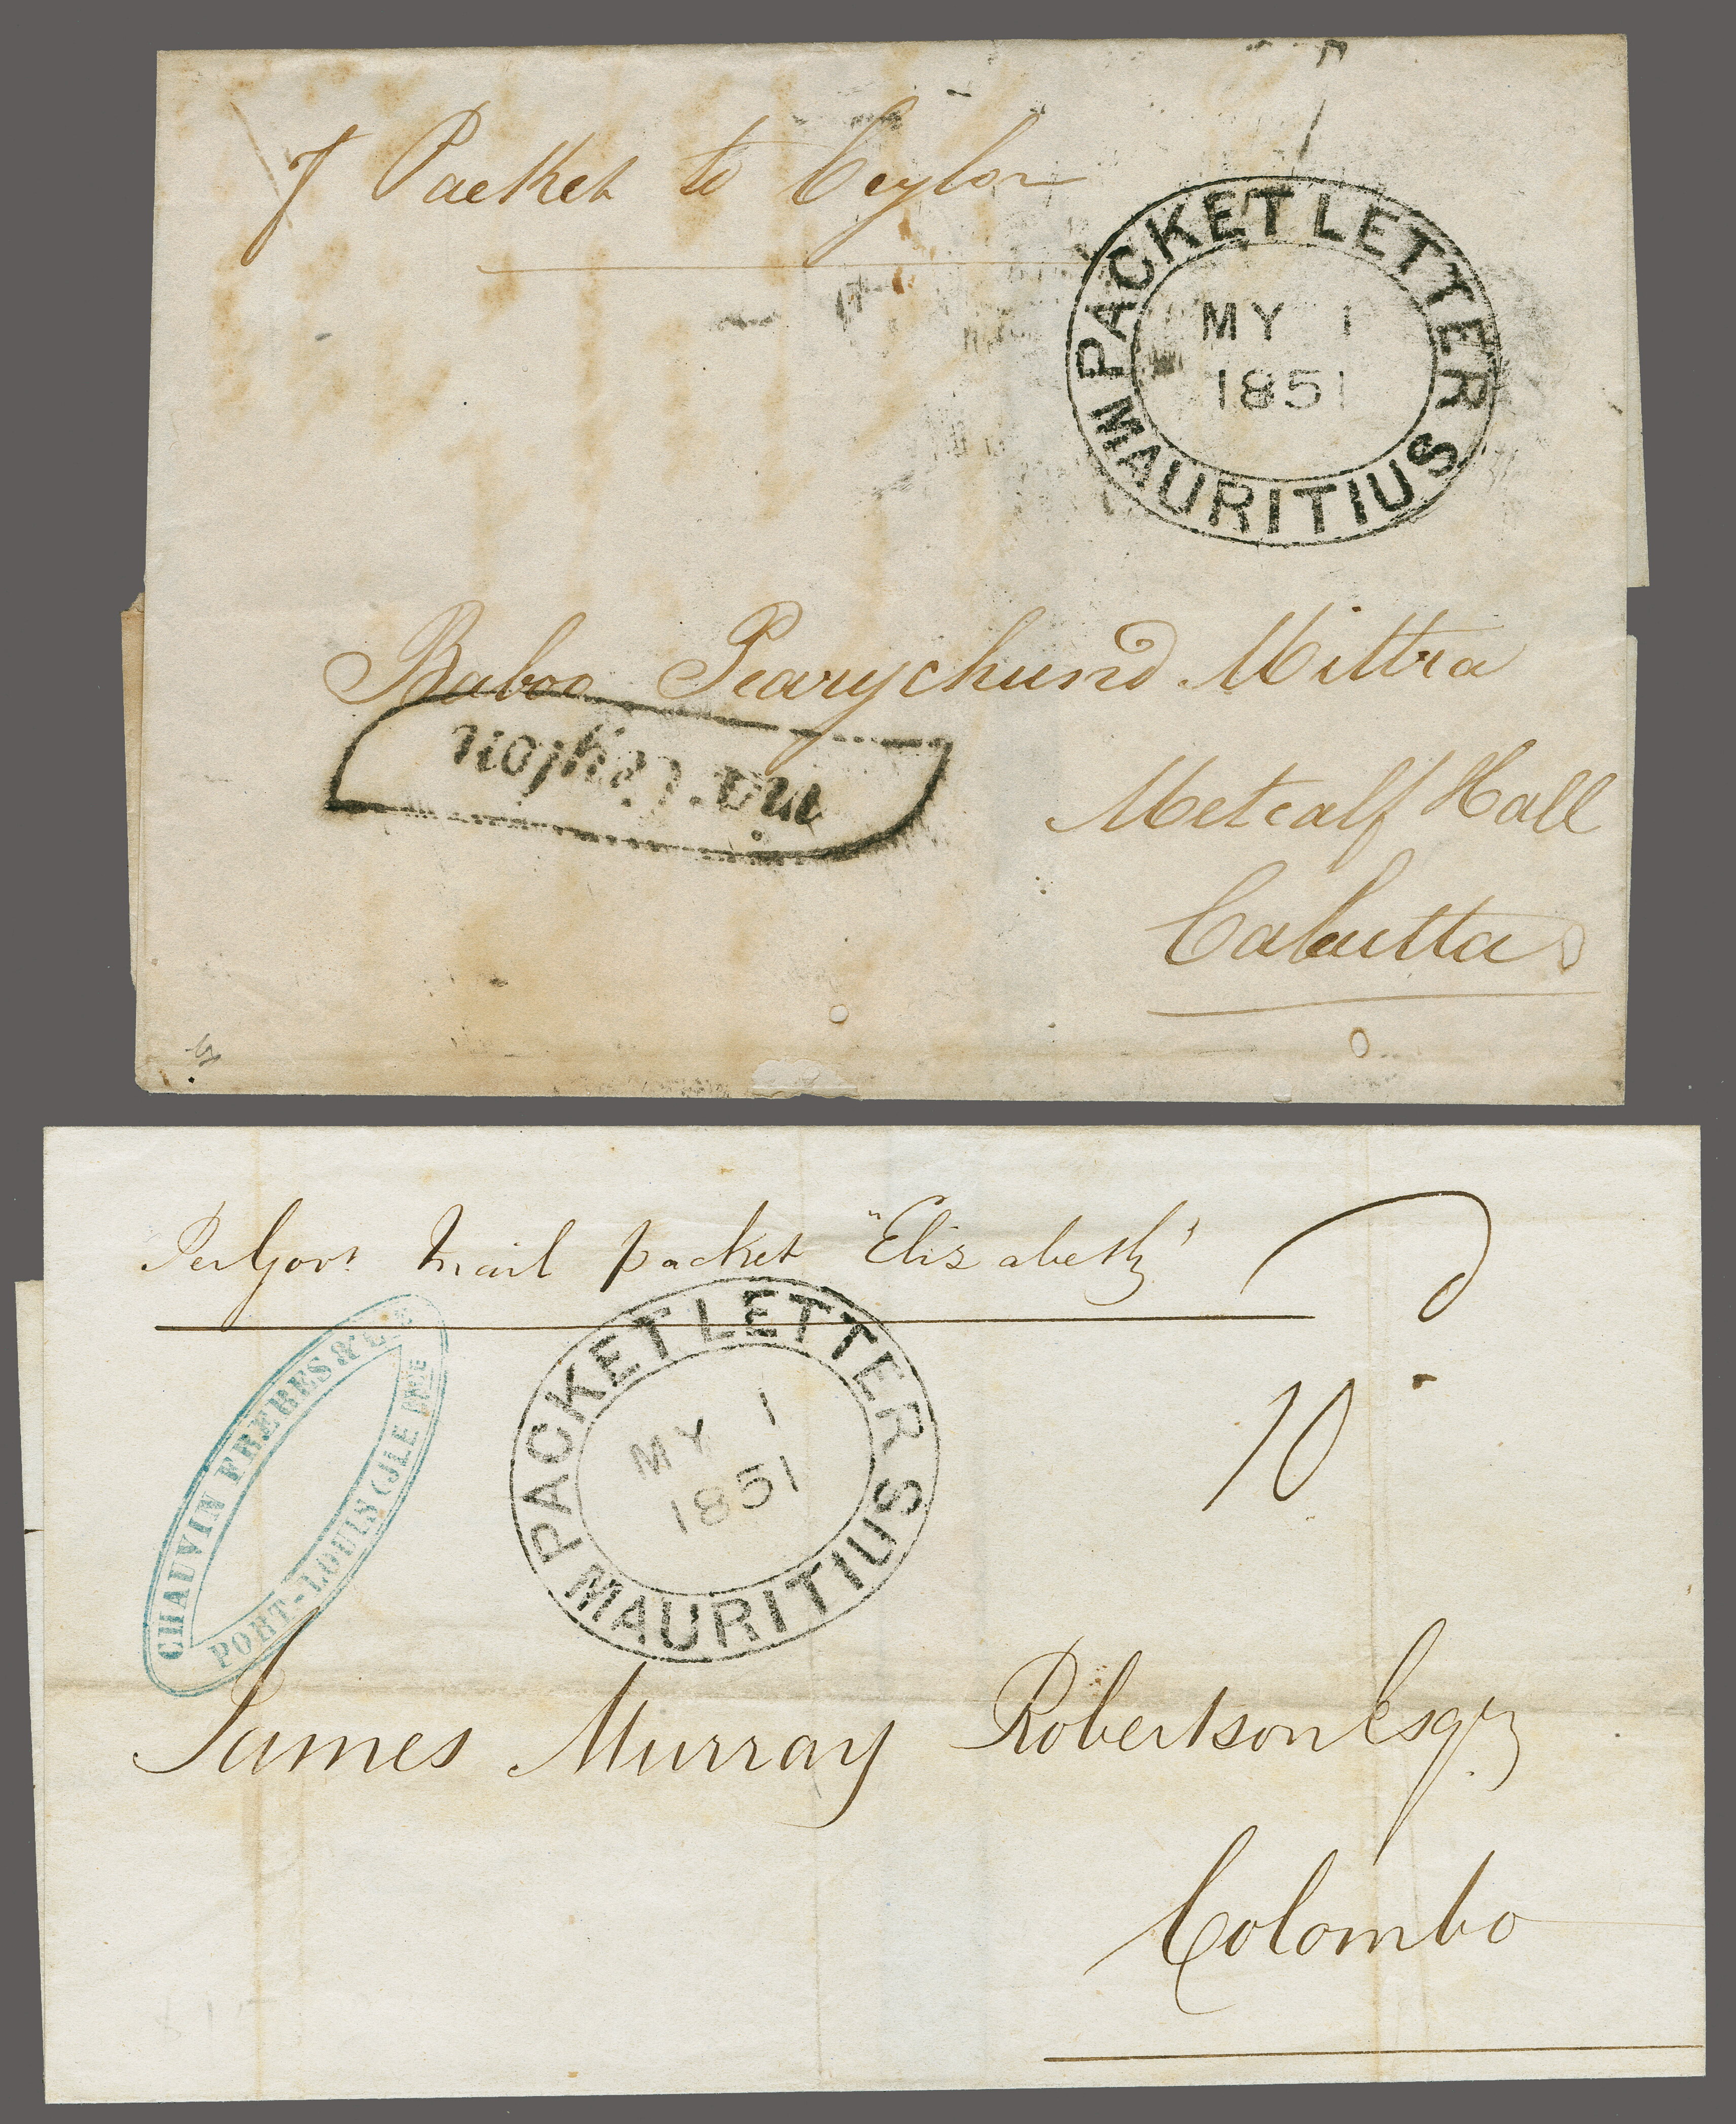 P Packet to Ceylon
PACKET LETTER
MY 1
1851
MAURITIUS
Baboo Pearychund Mittra
via Ceylon
Metcalf Hall
Calcutta
Per Govt Mail packet "Elizabeth"
PACKET LETTER
MY 1
1851
MAURITIUS
CHAUVIN FRERES &
PORT-LOUIS (ILE
10
James Murray Robertson Esqr
Colombo